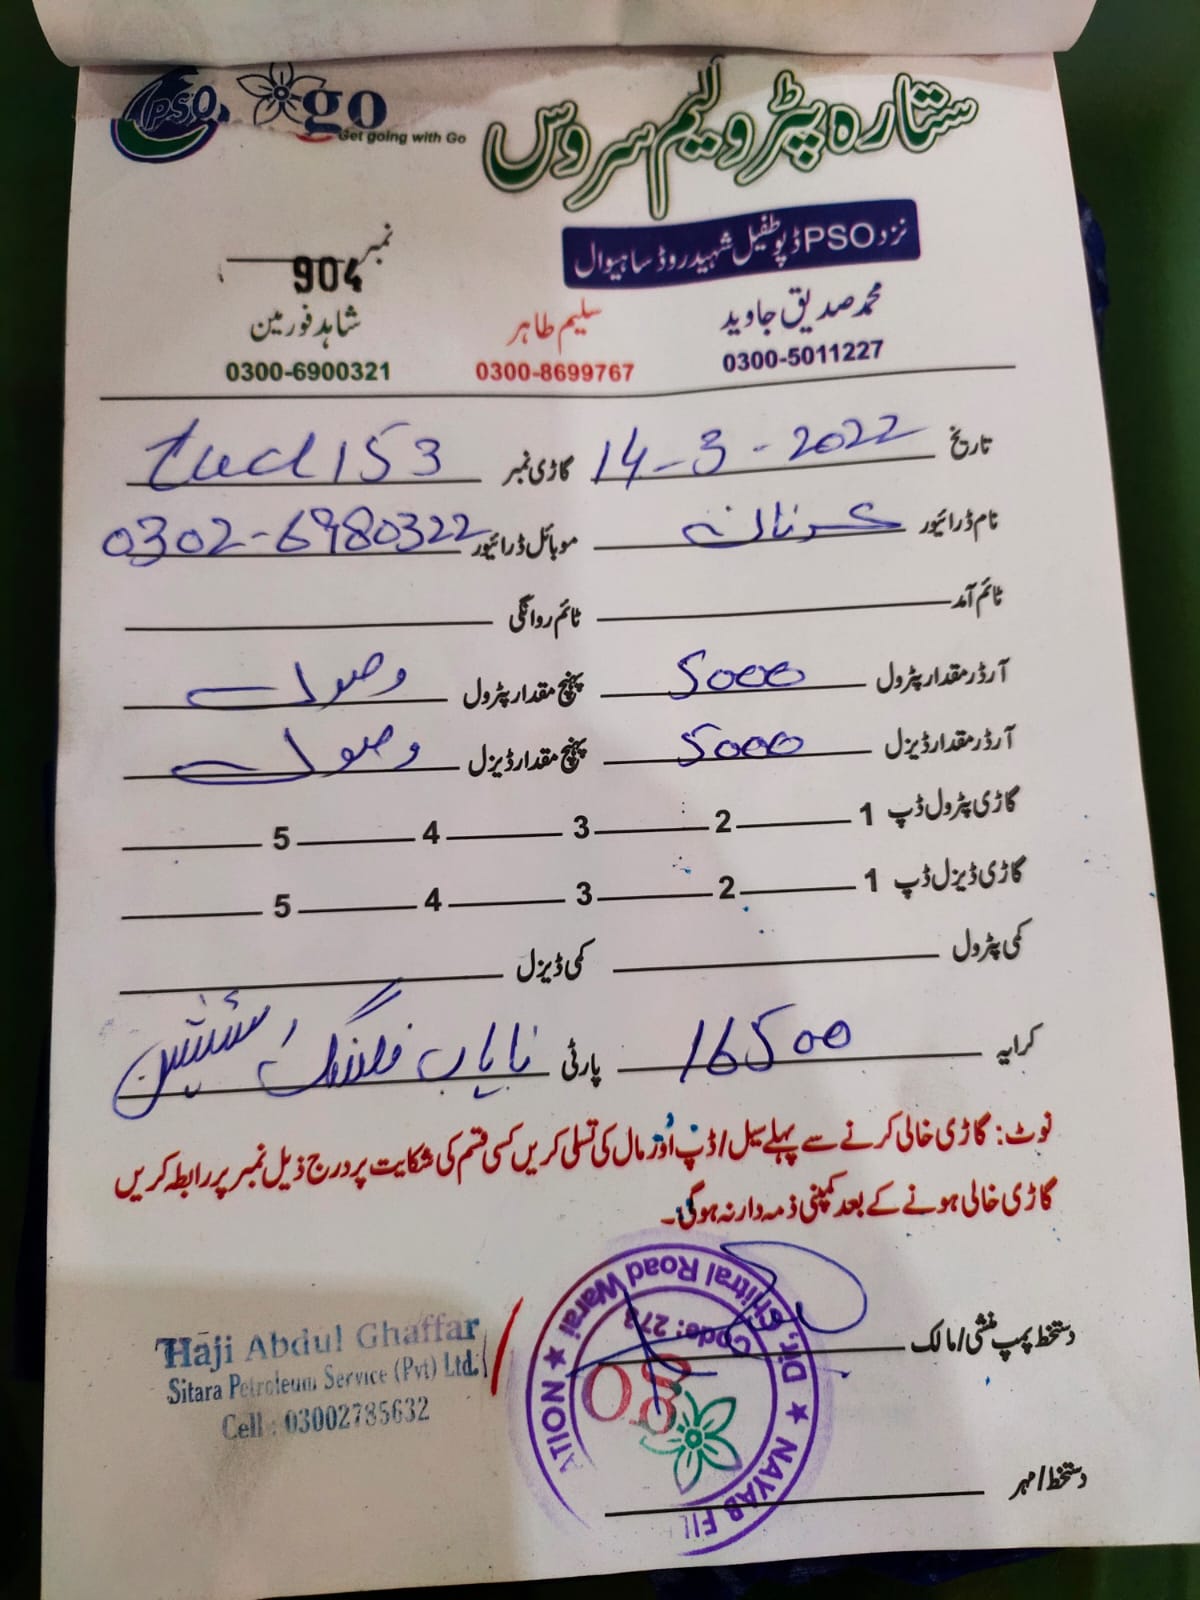 PSO go ستارہ پٹرولیم سروس
Get going with Go
نزد PSO ڈپو طفیل شہید روڈ ساہیوال
نمبر 904
محمد صدیق جاوید سلیم طاہر شاہد فورمین
0300-5011227 0300-8699767 0300-6900321
تاریخ 14-3-2022 گاڑی نمبر 153
نام ڈرائیور موبائل ڈرائیور 0302-6980322
ٹائم آمد ٹائم روانگی
آرڈر مقدار پٹرول 5000 پہنچ مقدار پٹرول وصول
آرڈر مقدار ڈیزل 5000 پہنچ مقدار ڈیزل وصول
گاڑی پٹرول ڈپ 1 2 3 4 5
گاڑی ڈیزل ڈپ 1 2 3 4 5
کمی پٹرول کمی ڈیزل
کرایہ 16500 پارٹی نایاب فلنگ سٹیشن
نوٹ: گاڑی خالی کرنے سے پہلے سیل/ڈپ اور مال کی تسلی کریں کسی قسم کی شکایت پر درج ذیل نمبر پر رابطہ کریں
گاڑی خالی ہونے کے بعد کمپنی ذمہ دار نہ ہوگی۔
دستخط پمپ منشی/مالک
Haji Abdul Ghaffar
Sitara Petroleum Service (Pvt) Ltd.
Cell : 03002785632
NAYAB FIL ATION ★ Chitral Road Warai ★
Code: 27
08
دستخط/مہر